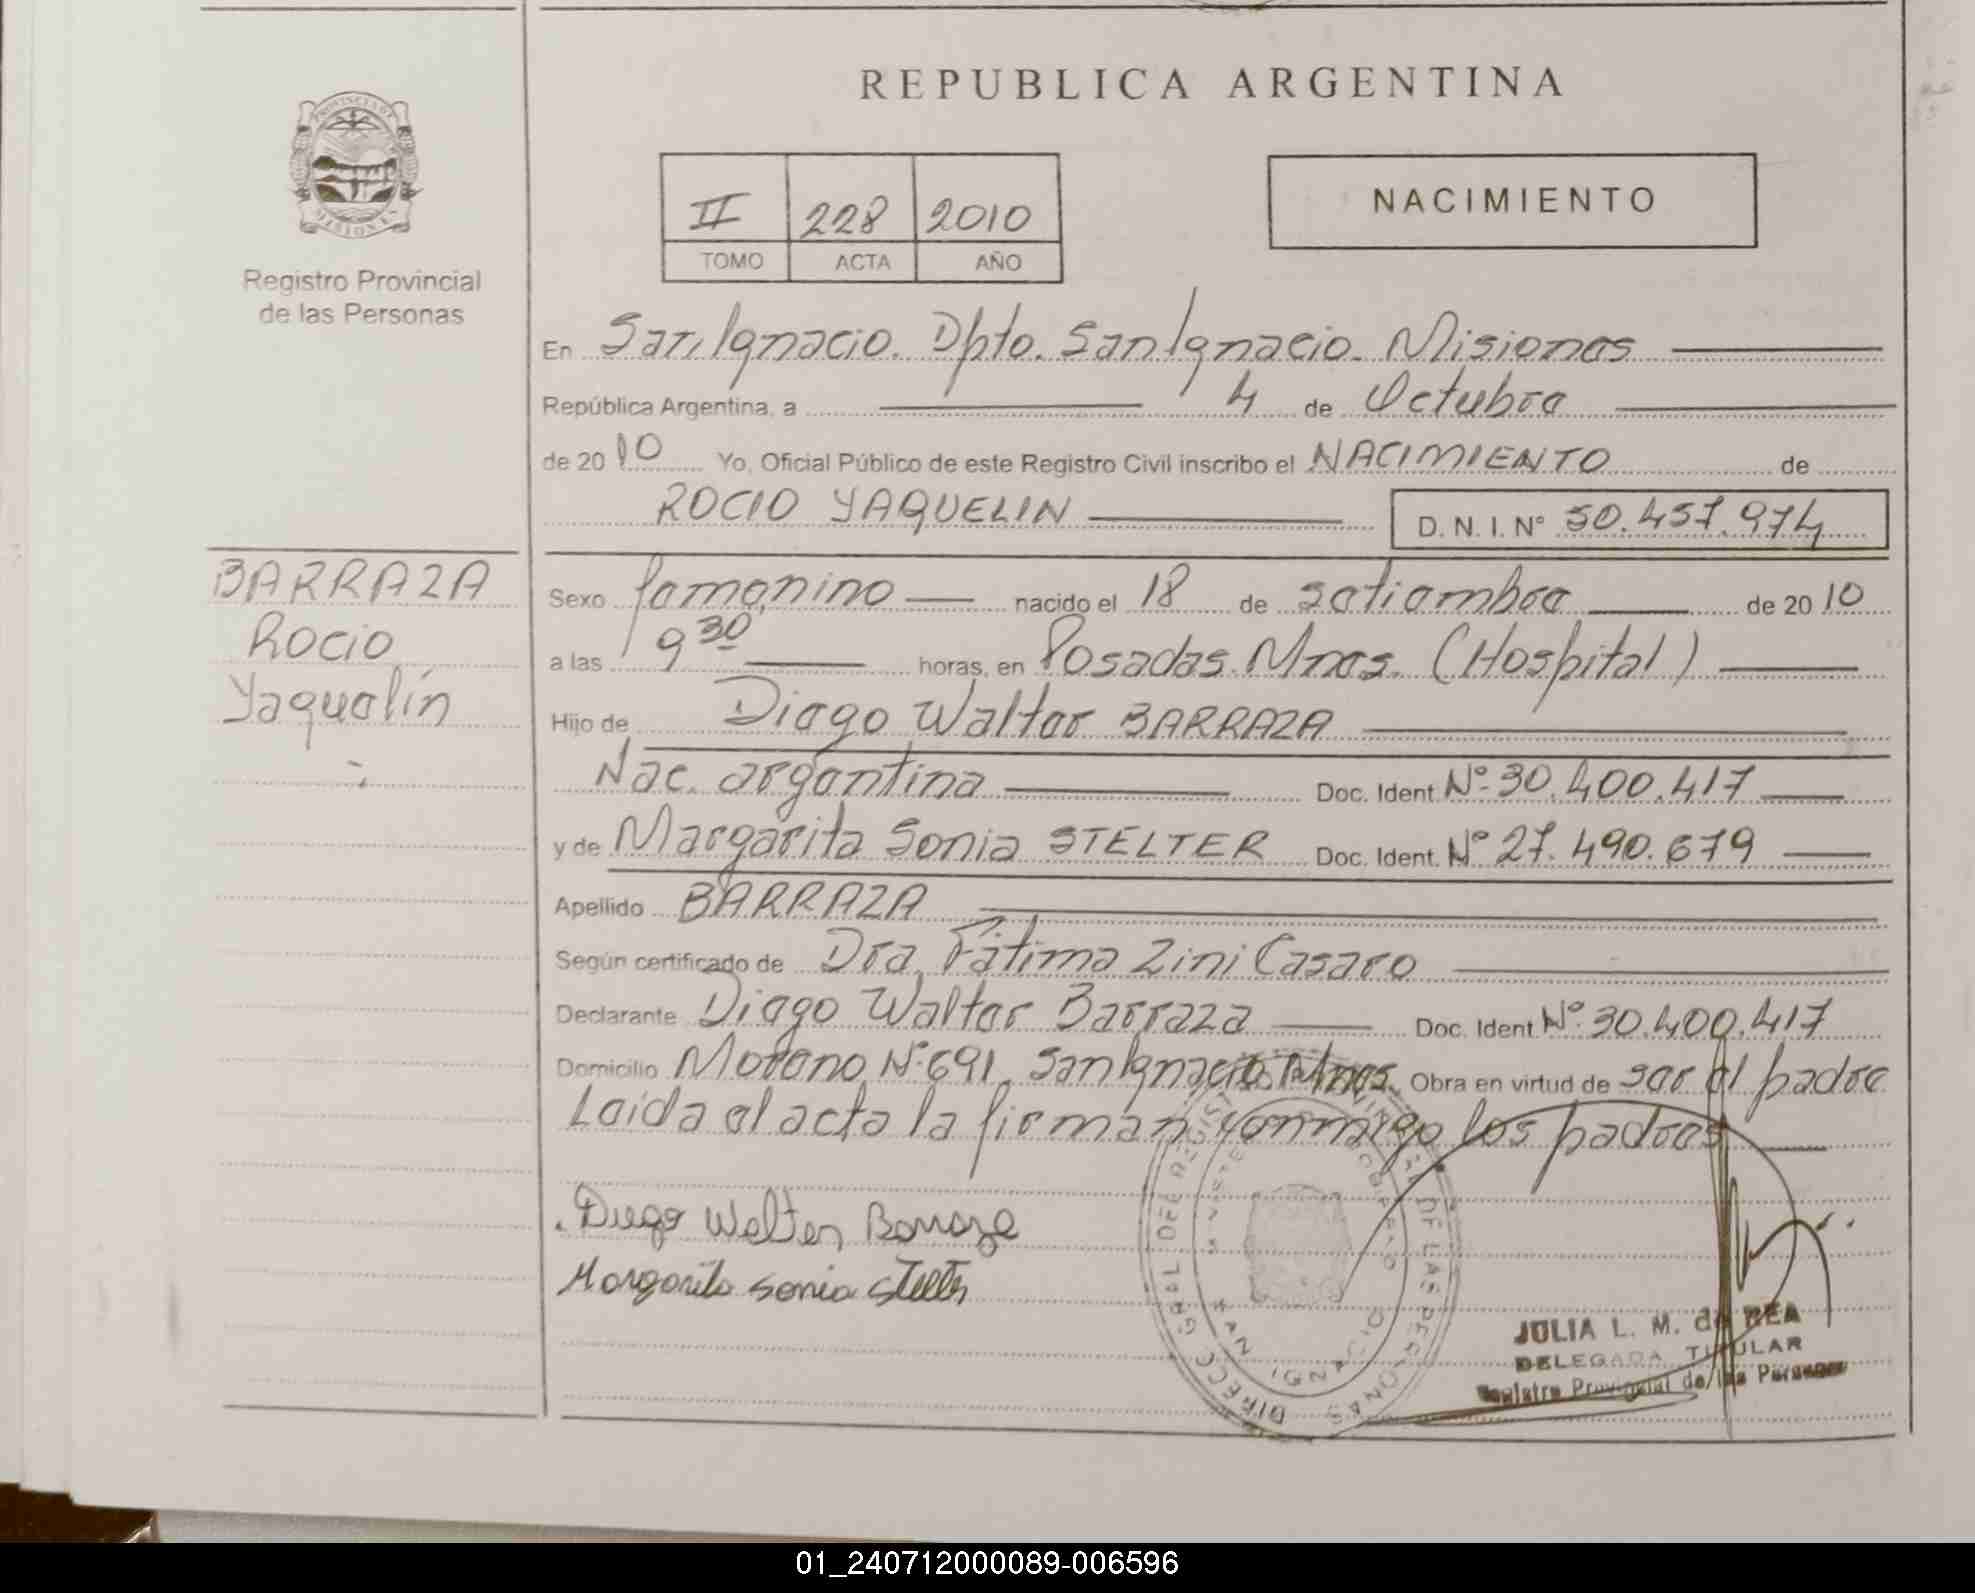 REPUBLICA ARGENTINA
PROVINCIA DE MISIONES
Registro Provincial
de las Personas
II 228 2010
TOMO ACTA AÑO
NACIMIENTO
En San Ignacio. Dpto. San Ignacio. Misiones
República Argentina, a 4 de Octubre
de 2010 Yo, Oficial Público de este Registro Civil inscribo el NACIMIENTO de
ROCIO YAQUELIN D. N. I. Nº 50.457.974
BARRAZA
Rocio
Yaquelín
Sexo femenino nacido el 18 de setiembre de 2010
a las 9 30 horas, en Posadas. Mnes. (Hospital)
Hijo de Diego Walter BARRAZA
Nac. argentina Doc. Ident. Nº 30.400.417
y de Margarita Sonia STELTER Doc. Ident. Nº 27.490.679
Apellido BARRAZA
Según certificado de Dra. Fátima Zini Casaro
Declarante Diego Walter Barraza Doc. Ident. Nº 30.400.417
Domicilio Moreno Nº 691. San Ignacio. Mnes. Obra en virtud de ser el padre
Leida el acta la firman conmigo los padres
Diego Walter Barraza
Margarita Sonia Stelter
DIRECC. GRAL. DEL REGIST DE LAS PERSONAS
SAN IGNACIO
JULIA L. M. de REA
DELEGADA TITULAR
Registro Provincial de las Personas
01_240712000089-006596